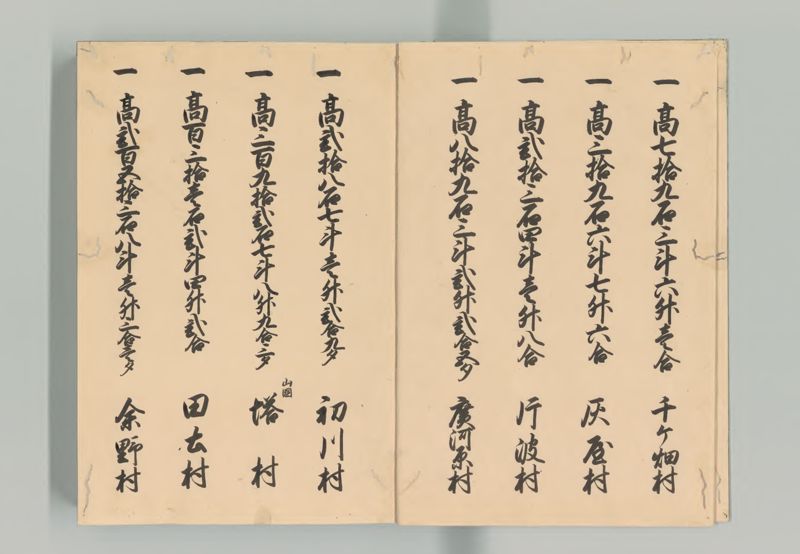 一 高七拾九石三斗六升壱合 千ケ畑村
一 高三拾九石六斗七升六合 灰屋村
一 高弐拾三石四斗壱升八合 片波村
一 高八拾九石三斗弐升弐合五夕 廣河原村
一 高弐拾八石七斗壱升弐合九夕 初川村
一 高三百九拾弐石七斗八升九合三夕 山國 塔村
一 高百三拾壱石弐斗四升弐合 田土村
一 高弐百五拾三石八斗壱升三合壱夕 余野村